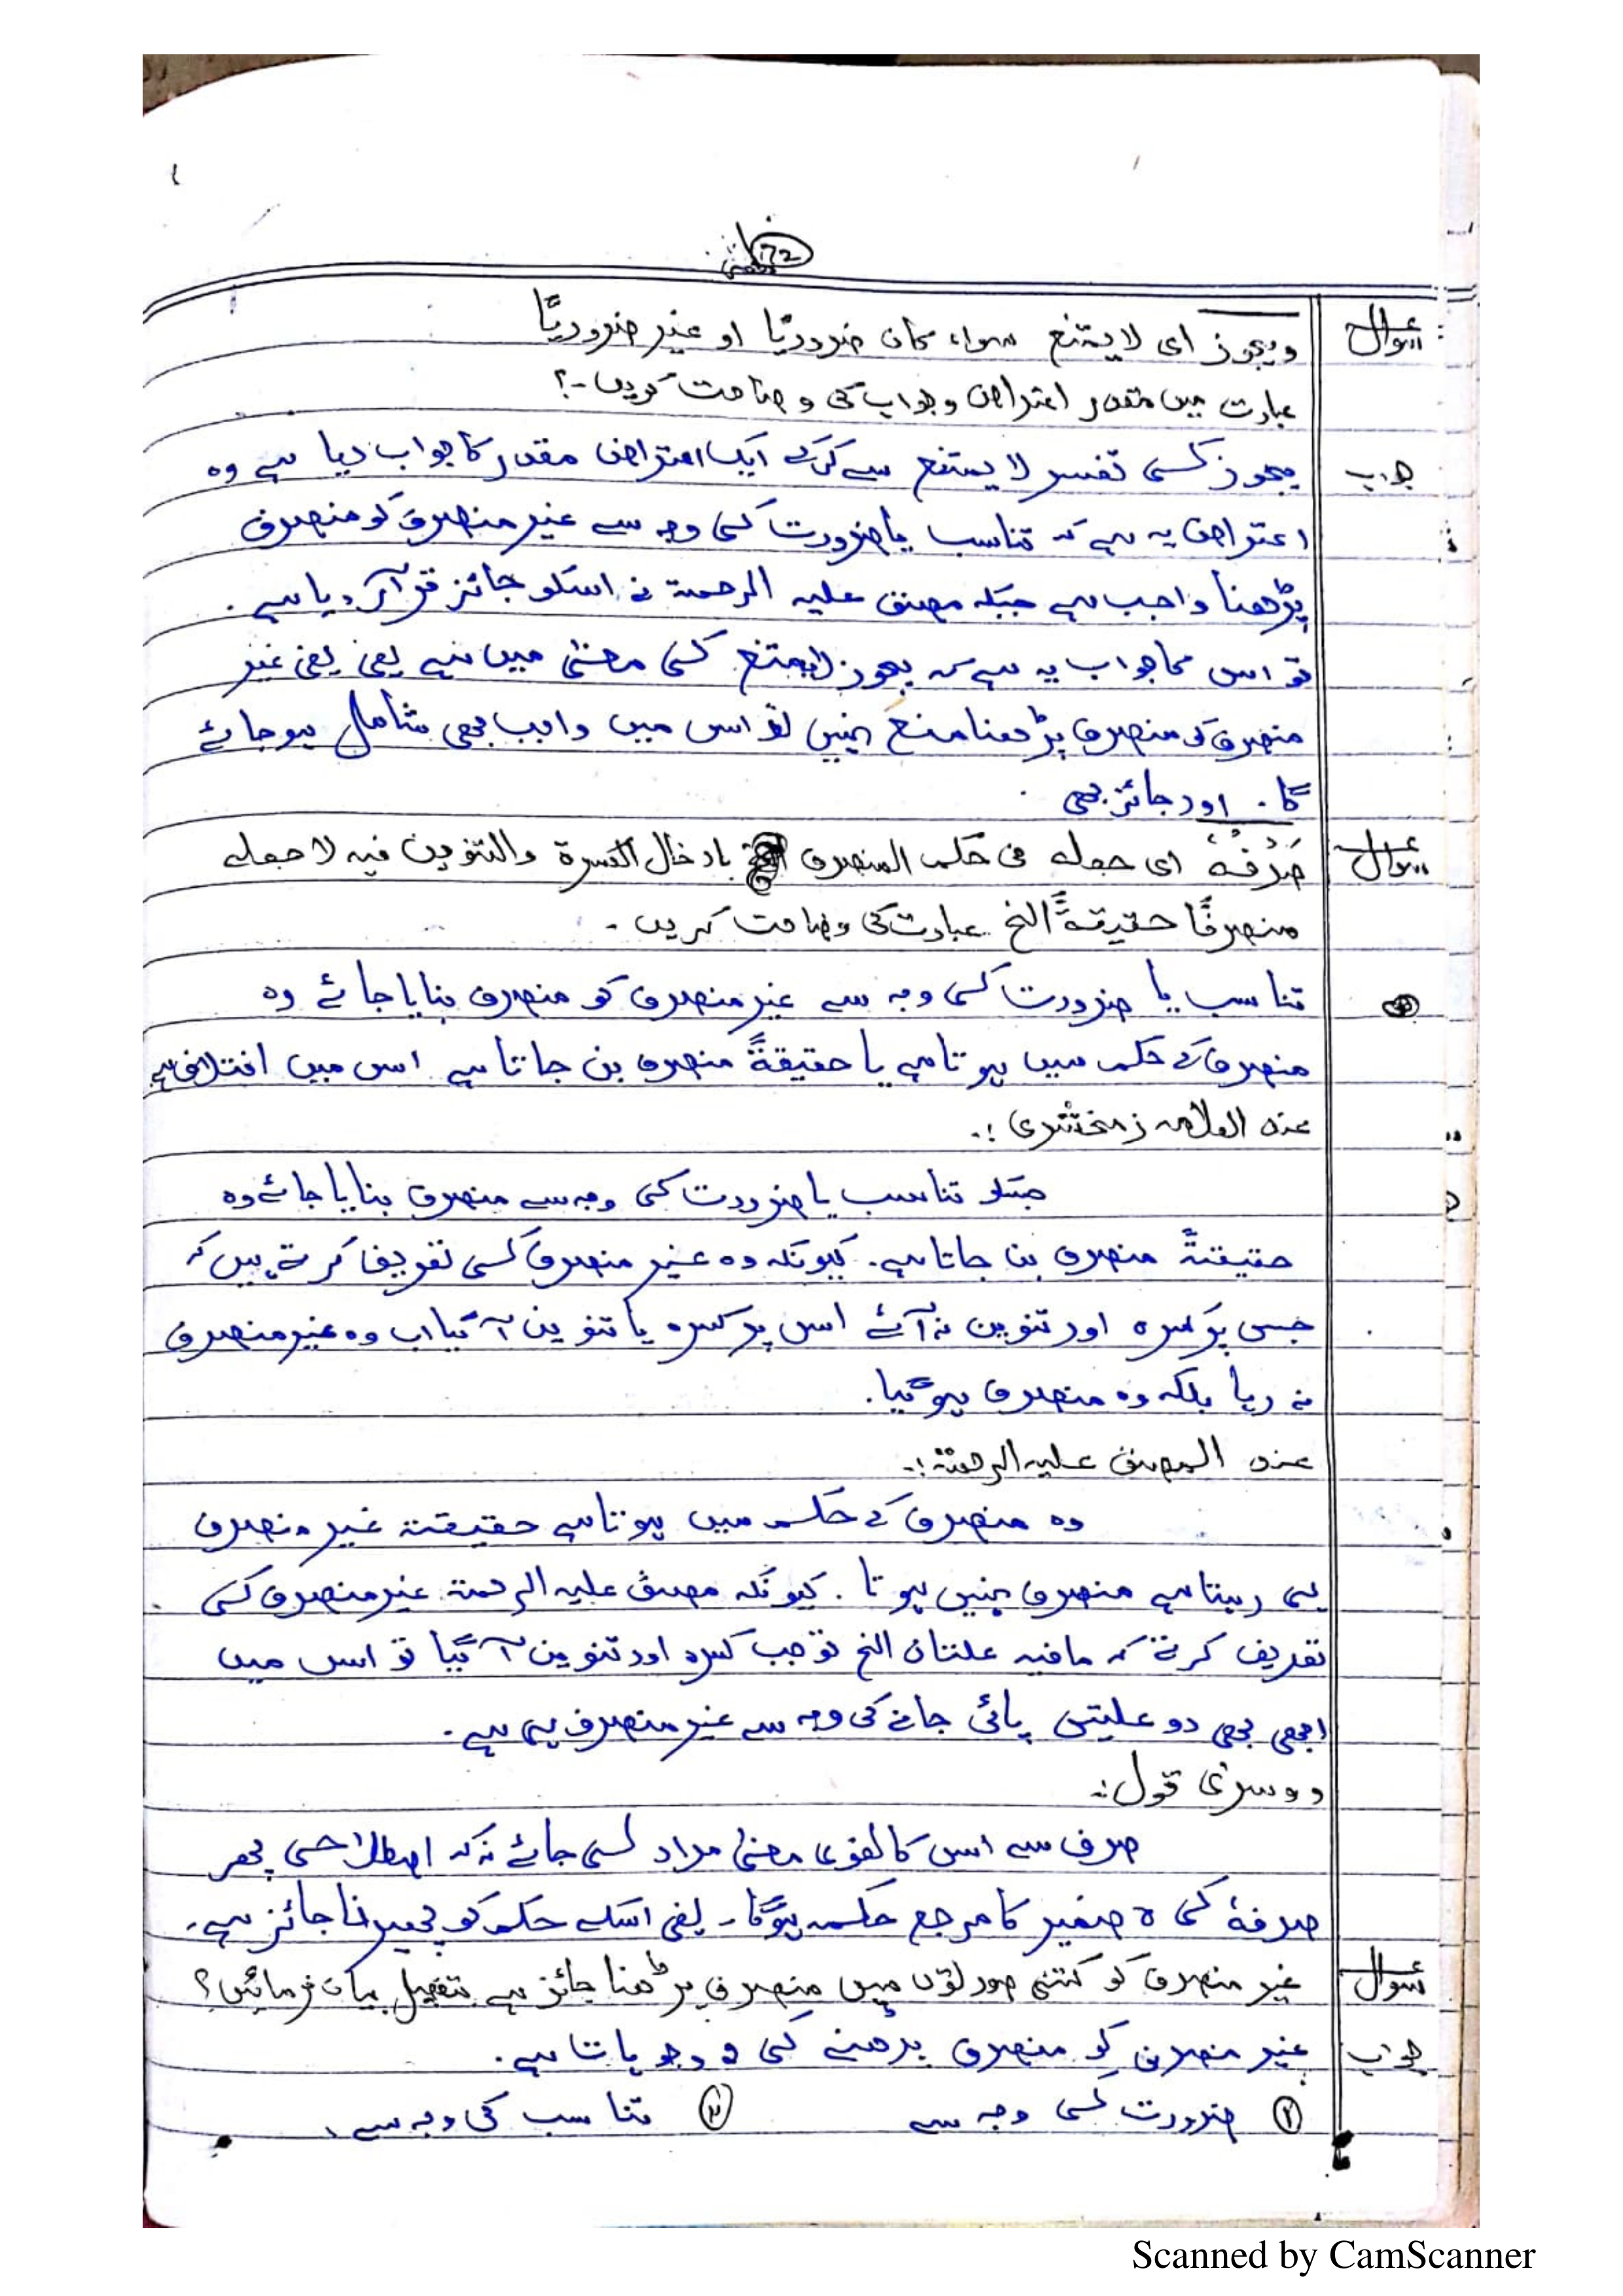 72
سوال ویجوز ای لا یمتنع سواء کان ضروریًا او غیر ضروریًا
عبارت میں مقدر اعتراض و جواب کی وضاحت کریں۔؟
جواب یجوز کی تفسیر لا یمتنع سے کرکے ایک اعتراض مقدر کا جواب دیا ہے وہ
اعتراض یہ ہے کہ تناسب یا ضرورت کی وجہ سے غیر منصرف کو منصرف
پڑھنا واجب ہے جبکہ مصنف علیہ الرحمۃ نے اسکو جائز قرار دیا ہے۔
تو اس کا جواب یہ ہے کہ یجوز لایمتنع کی معنیٰ میں ہے یعنی یعنی غیر
منصرف کو منصرف پڑھنا منع نہیں تو اس میں واجب بھی شامل ہو جائے
گا۔ اور جائز بھی
سوال صَرْفُہٗ ای جعلہ فی حکم المنصرف بادخال الکسرۃ والتنوین فیہ لا جعلہ
منصرفًا حقیقۃً الخ عبارت کی وضاحت کریں۔
تناسب یا ضرورت کی وجہ سے غیر منصرف کو منصرف بنایا جائے وہ
منصرف کے حکم میں ہوتا ہے یا حقیقۃً منصرف بن جاتا ہے اس میں اختلاف ہے
عند العلامہ زمخشری :۔
جبکہ تناسب یا ضرورت کی وجہ سے منصرف بنایا جائے وہ
حقیقتۃً منصرف بن جاتا ہے۔ کیونکہ وہ غیر منصرف کی تعریف کرتے ہیں کہ
جس پر کسرہ اور تنوین نہ آئے اس پر کسرہ یا تنوین آ گیا اب وہ غیر منصرف
نہ رہا بلکہ وہ منصرف ہو گیا۔
عند المصنف علیہ الرحمۃ :۔
وہ منصرف کے حکم میں ہوتا ہے حقیقتۃ غیر منصرف
ہی رہتا ہے منصرف نہیں ہوتا۔ کیونکہ مصنف علیہ الرحمۃ غیر منصرف کی
تعریف کرتے کہ مافیہ علتان الخ تو جب کسرہ اور تنوین آ گیا تو اس میں
ابھی بھی دو علیتں پائی جانے کی وجہ سے غیر منصرف ہی ہے۔
دوسری قول :۔
صرف سے اس کا لغوی معنیٰ مراد لی جائے نہ کہ اصطلاحی پھر
صرفہٗ کی ہ ضمیر کا مرجع حکم ہو گا۔ یعنی اسکے حکم کو پھیرنا جائز ہے۔
سوال غیر منصرف کو کتنی صورتوں میں منصرف پڑھنا جائز ہے بتفصیل بیان فرمائیں؟
جواب غیر منصرف کو منصرف پڑھنے کی وجوہات ہے۔
ضرورت کی وجہ سے ۲ تناسب کی وجہ سے۔
Scanned by CamScanner